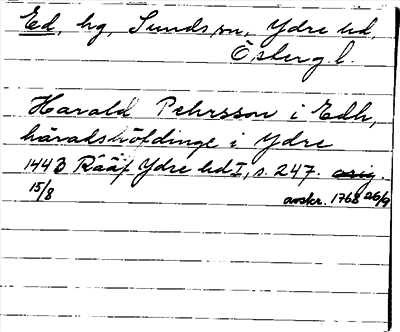 Ed, hg, Sunds sn, Ydre hd,
Östergl.
Harald Pehrsson i Edh,
häradshöfdinge i Ydre
1443 Rääf Ydre hd I, s. 247. orig.
15/8 avskr. 1768 26/9